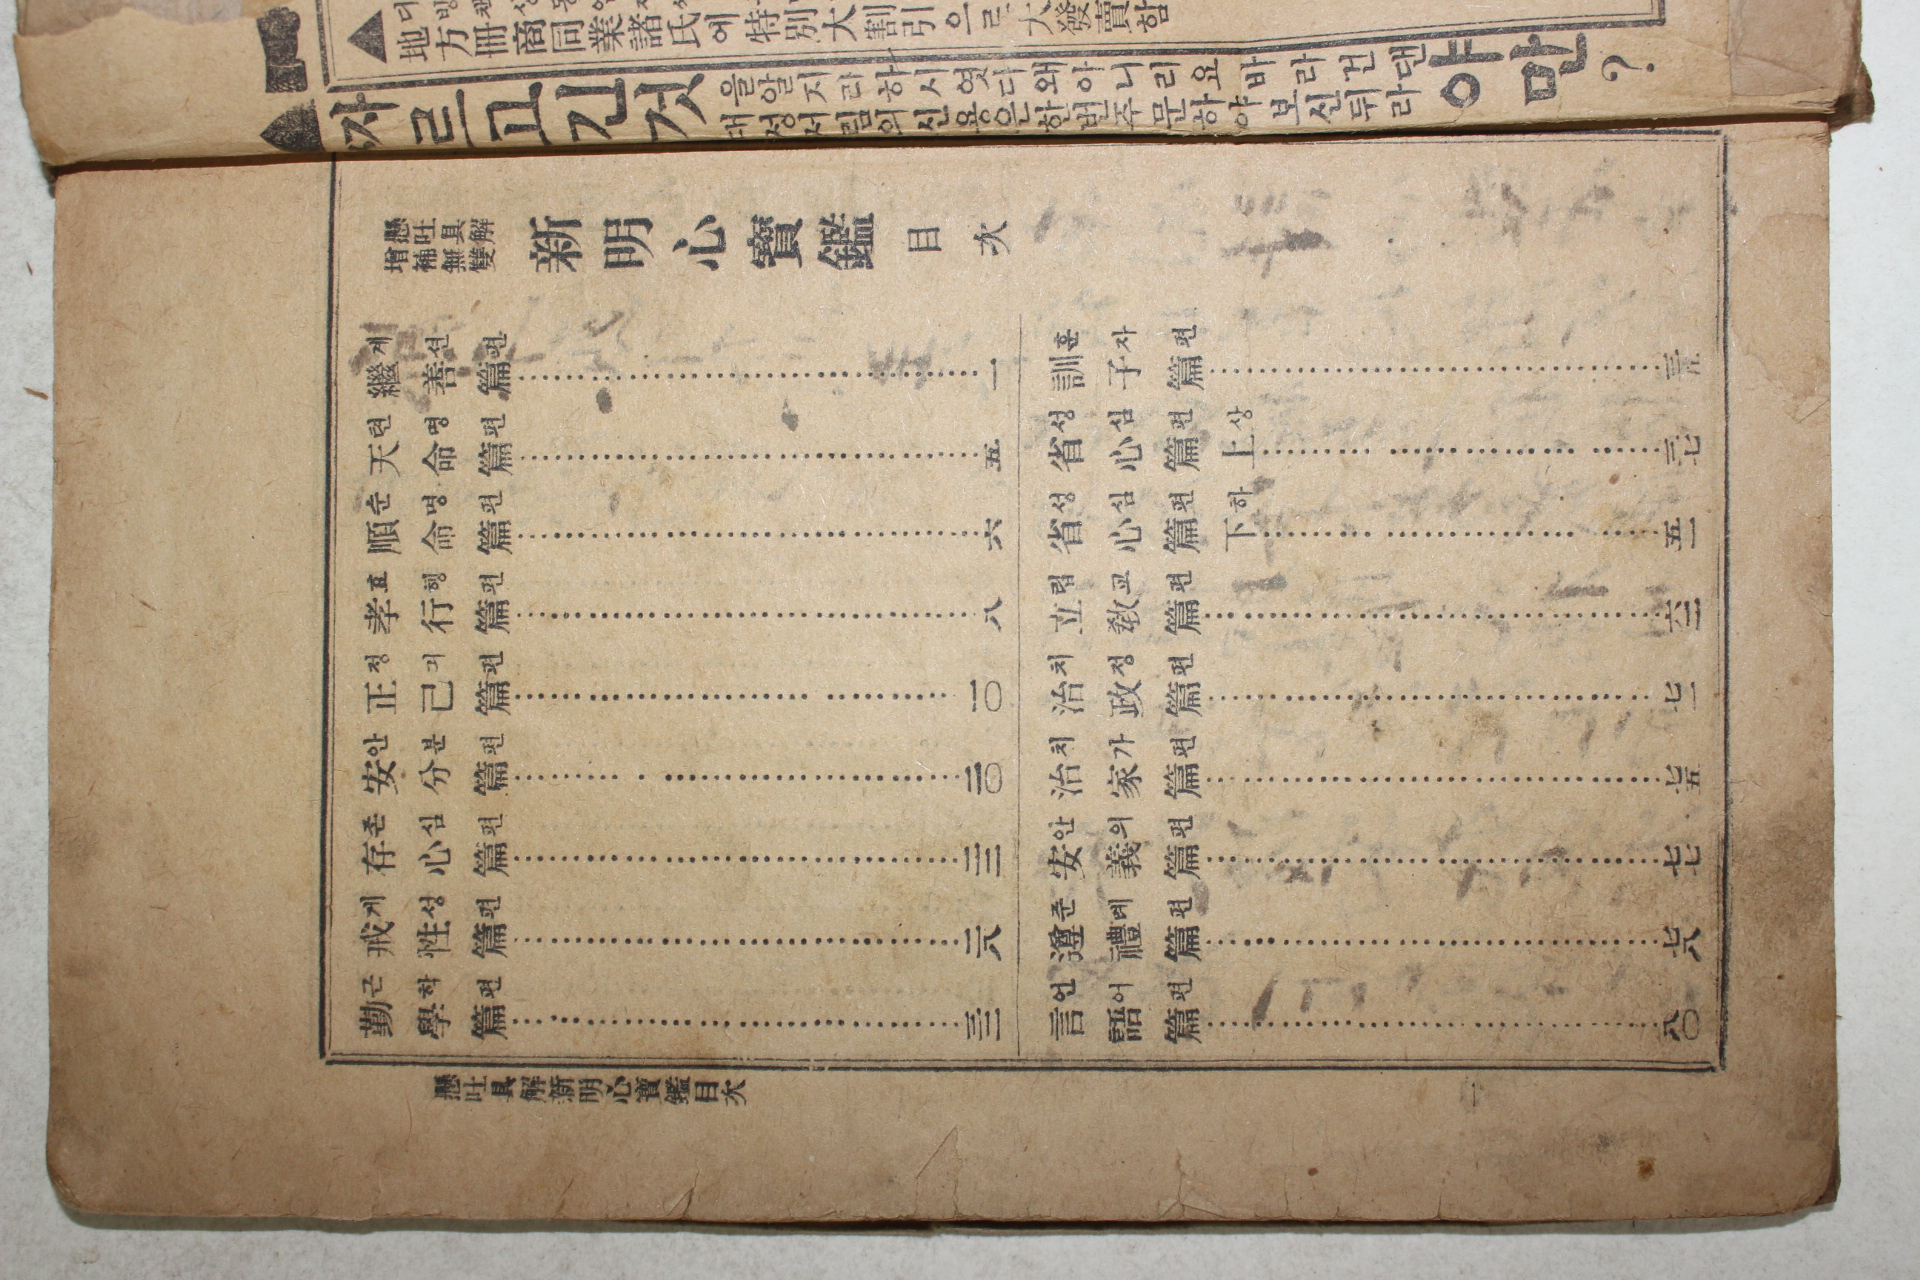 地方冊商同業諸氏에特別大割引으로大發賣함
자르고긴것
을알지라하시엿다왜아니리요바라건댄
대성서림의신용은한번주문하야보신뒤라
야만?
懸吐具解
增補無雙
新明心寶鑑 目次
繼善篇 계선편 一
天命篇 텬명편 五
順命篇 순명편 六
孝行篇 효행편 八
正己篇 정기편 一〇
安分篇 안분편 二〇
存心篇 존심편 二二
戒性篇 계성편 二八
勤學篇 근학편 三二
訓子篇 훈자편
省心篇上 성심편상 三七
省心篇下 성심편하 五一
立教篇 립교편 六二
治政篇 치정편 七一
治家篇 치가편 七五
安義篇 안의편 七七
遵禮篇 준례편 七八
言語篇 언어편 八〇
懸吐具解新明心寶鑑目次
一